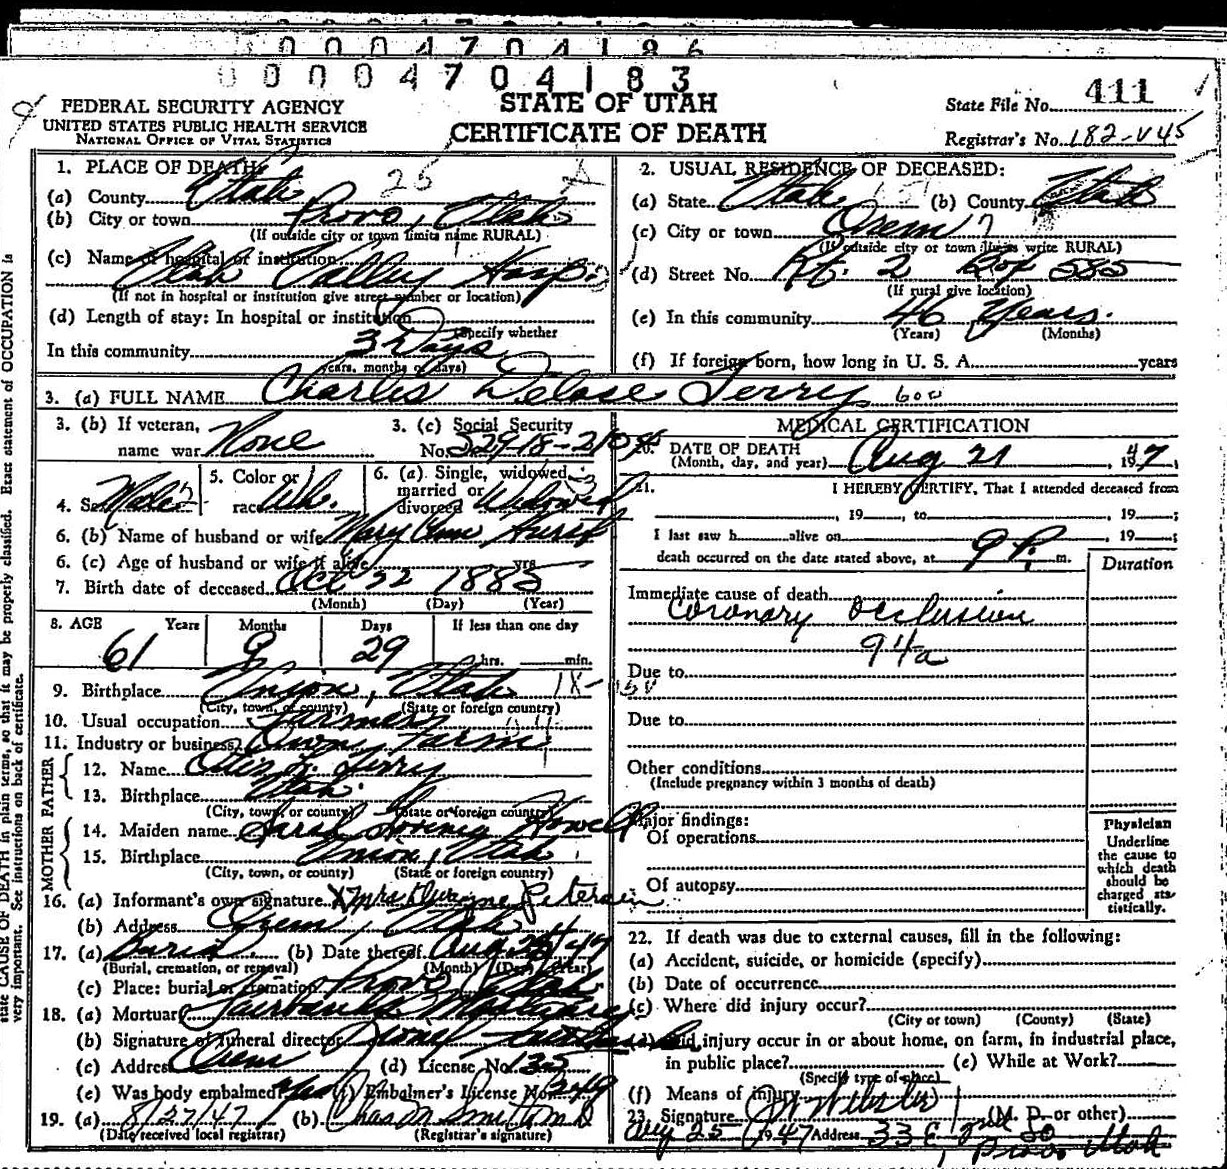 0 0 0 4 7 0 4 1 8 6
0 0 0 0 4 7 0 4 1 8 3
FEDERAL SECURITY AGENCY
UNITED STATES PUBLIC HEALTH SERVICE
NATIONAL OFFICE OF VITAL STATISTICS
STATE OF UTAH
CERTIFICATE OF DEATH
State File No. 411
Registrar's No. 182-V45
1. PLACE OF DEATH: 25
(a) County Utah
(b) City or town Provo, Utah
(If outside city or town limits name RURAL)
(c) Name of hospital or institution
Utah Valley Hosp
(If not in hospital or institution give street number or location)
(d) Length of stay: In hospital or institution
(Specify whether
In this community 3 Days
years, months or days)
2. USUAL RESIDENCE OF DECEASED:
(a) State Utah (b) County Utah
(c) City or town Orem
(If outside city or town limits write RURAL)
(d) Street No. Rt. 2 Box 585
(If rural give location)
(e) In this community 46 Years.
(Years) (Months)
(f) If foreign born, how long in U. S. A. years
3. (a) FULL NAME Charles Delose Terry 600
3. (b) If veteran,
name war None
3. (c) Social Security
No. 529-18-2105
4. Sex Male
5. Color or
race Wh.
6. (a) Single, widowed,
married or
divorced Widowed
6. (b) Name of husband or wife Mary Ann
6. (c) Age of husband or wife if alive yrs
7. Birth date of deceased Oct 22 1885
(Month) (Day) (Year)
8. AGE Years Months Days If less than one day
61 9 29 hrs. min.
9. Birthplace Union, Utah
(City, town, or county) (State or foreign country)
10. Usual occupation Farmer
11. Industry or business Own Farm
FATHER
12. Name Otis L. Terry
13. Birthplace Utah
(City, town, or county) (State or foreign country)
MOTHER
14. Maiden name Sarah Howell
15. Birthplace Union, Utah
(City, town, or county) (State or foreign country)
16. (a) Informant's own signature X Mrs Petersen
(b) Address Orem, Utah
17. (a) Burial (b) Date thereof Aug 47
(Burial, cremation, or removal) (Month) (Day) (Year)
(c) Place: burial or cremation Provo Utah
18. (a) Mortuary Fairbanks Mortuary
(b) Signature of funeral director
(c) Address Orem (d) License No. 135
(e) Was body embalmed? Yes (f) Embalmer's License No. 249
19. (a) 8/27/47 (b) Chas M Smith M D
(Date received local registrar) (Registrar's signature)
MEDICAL CERTIFICATION
20. DATE OF DEATH
(Month, day, and year) Aug 21, 1947
21. I HEREBY CERTIFY, That I attended deceased from
, 19 , to , 19 ;
I last saw h alive on , 19 ;
death occurred on the date stated above, at 9 P. m.
Duration
Immediate cause of death
Coronary Occlusion
94a
Due to
Due to
Other conditions
(Include pregnancy within 3 months of death)
Major findings:
Of operations
Of autopsy
Physician
Underline
the cause to
which death
should be
charged sta-
tistically.
22. If death was due to external causes, fill in the following:
(a) Accident, suicide, or homicide (specify)
(b) Date of occurrence
(c) Where did injury occur?
(City or town) (County) (State)
(d) Did injury occur in or about home, on farm, in industrial place,
in public place? (e) While at Work?
(Specify type of place)
(f) Means of injury
23. Signature J W Webster (M. D. or other)
Aug 25 1947 Address 33 E
Provo Utah
state CAUSE OF DEATH in plain terms, so that it may be properly classified. Exact statement of OCCUPATION is
very important. See instructions on back of certificate.